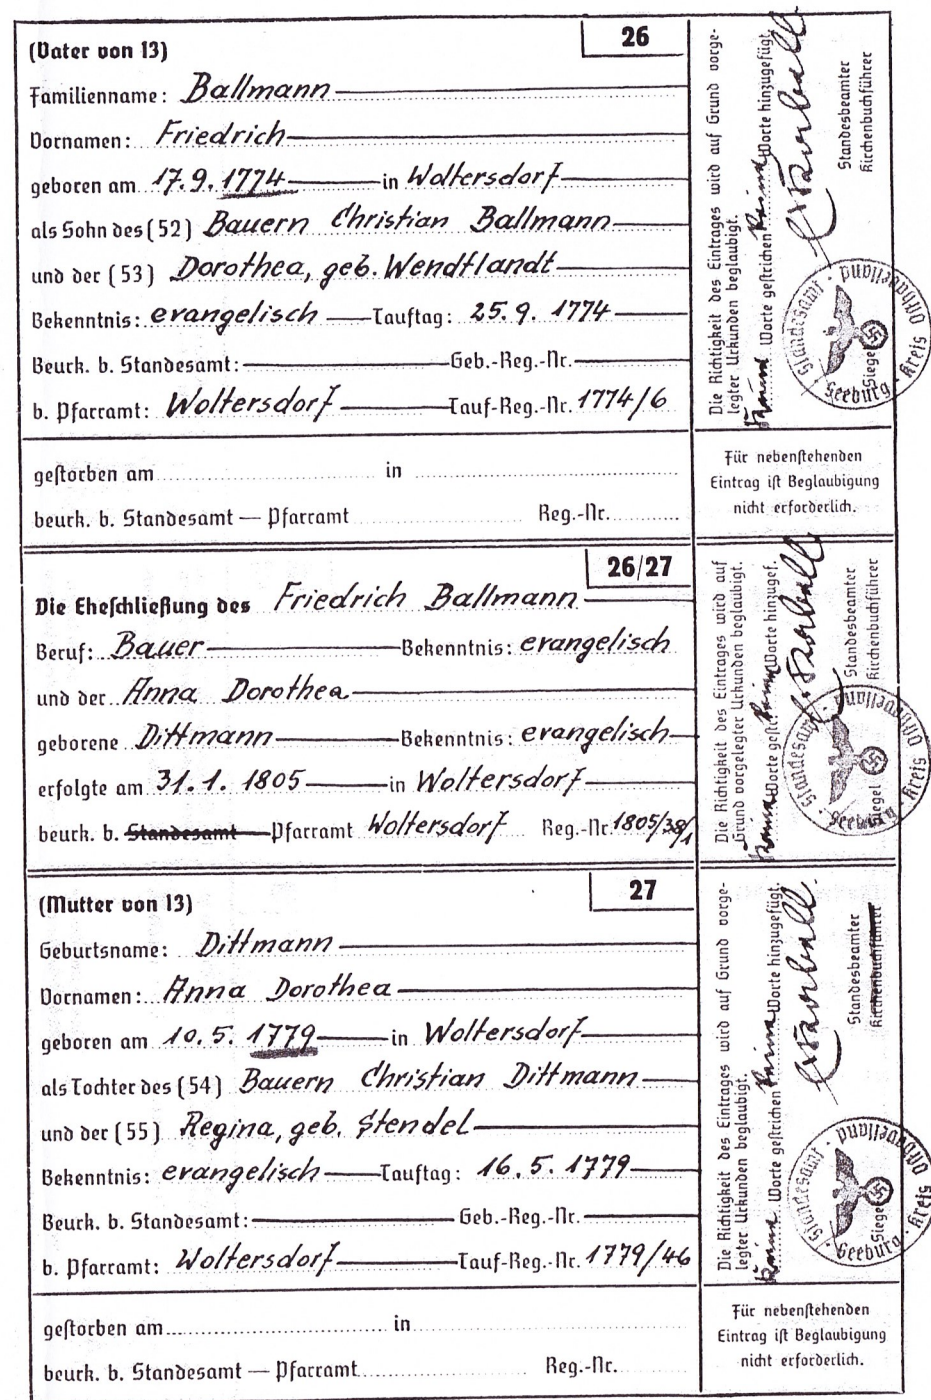 26
(Vater von 13)
Familienname: Ballmann
Vornamen: Friedrich
geboren am 17.9.1774 in Woltersdorf
als Sohn des (52) Bauern Christian Ballmann
und der (53) Dorothea, geb. Wendtlandt
Bekenntnis: evangelisch Tauftag: 25.9.1774
Beurk. b. Standesamt: Geb.-Reg.-Nr.
b. Pfarramt: Woltersdorf Tauf-Reg.-Nr. 1774/6
gestorben am in
beurk. b. Standesamt — Pfarramt Reg.-Nr.
Die Richtigkeit des Eintrages wird auf Grund vorge-
legter Urkunden beglaubigt.
Keine Worte gestrichen Keine Worte hinzugefügt.
Standesbeamter
Kirchenbuchführer
Standesamt · Seeburg · Kreis Osthavelland
Siegel
Für nebenstehenden
Eintrag ist Beglaubigung
nicht erforderlich.
26/27
Die Eheschließung des Friedrich Ballmann
Beruf: Bauer Bekenntnis: evangelisch
und der Anna Dorothea
geborene Dittmann Bekenntnis: evangelisch
erfolgte am 31.1.1805 in Woltersdorf
beurk. b. Standesamt Pfarramt Woltersdorf Reg.-Nr. 1805/38/1
Die Richtigkeit des Eintrages wird auf
Grund vorgelegter Urkunden beglaubigt.
Keine Worte gestr. Keine Worte hinzugef.
Standesbeamter
Kirchenbuchführer
Standesamt · Seeburg · Kreis Osthavelland
Siegel
27
(Mutter von 13)
Geburtsname: Dittmann
Vornamen: Anna Dorothea
geboren am 10.5.1779 in Woltersdorf
als Tochter des (54) Bauern Christian Dittmann
und der (55) Regina, geb. Stendel
Bekenntnis: evangelisch Tauftag: 16.5.1779
Beurk. b. Standesamt: Geb.-Reg.-Nr.
b. Pfarramt: Woltersdorf Tauf-Reg.-Nr. 1779/46
gestorben am in
beurk. b. Standesamt — Pfarramt Reg.-Nr.
Die Richtigkeit des Eintrages wird auf Grund vorge-
legter Urkunden beglaubigt.
Keine Worte gestrichen Keine Worte hinzugefügt.
Standesbeamter
Kirchenbuchführer
Standesamt · Seeburg · Kreis Osthavelland
Siegel
Für nebenstehenden
Eintrag ist Beglaubigung
nicht erforderlich.